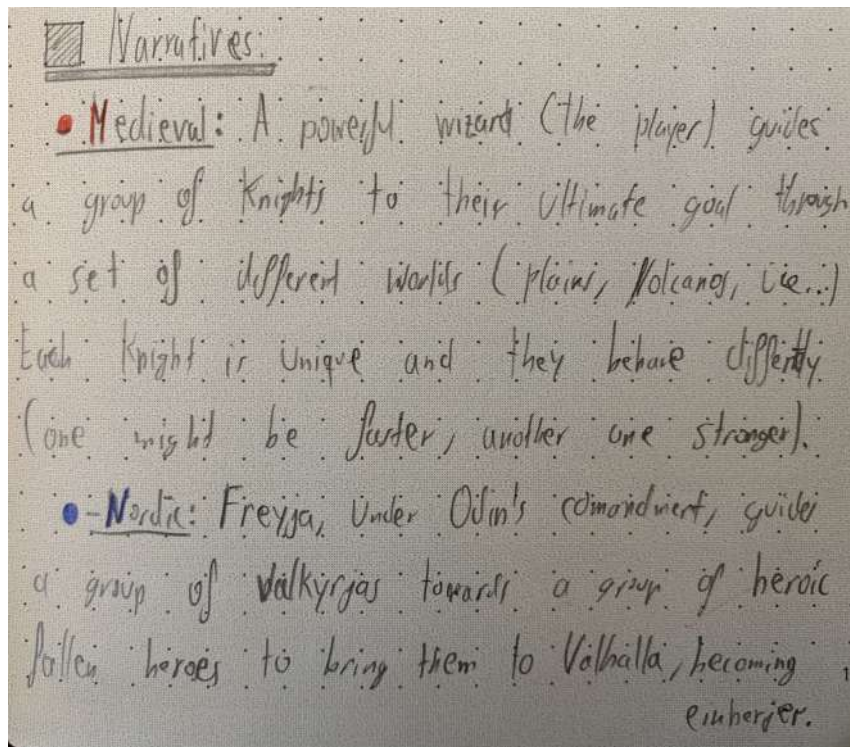 Narratives:
Medieval: A powerful wizard (the player) guides
a group of Knights to their ultimate goal through
a set of different worlds (plains, Volcanos, ice...)
Each Knight is unique and they behave differently
(one might be faster, another one stronger).
-Nordic: Freyja, Under Odin's comandment, guides
a group of valkyrjas towards a group of heroic
fallen heroes to bring them to Valhalla, becoming
einherjer.